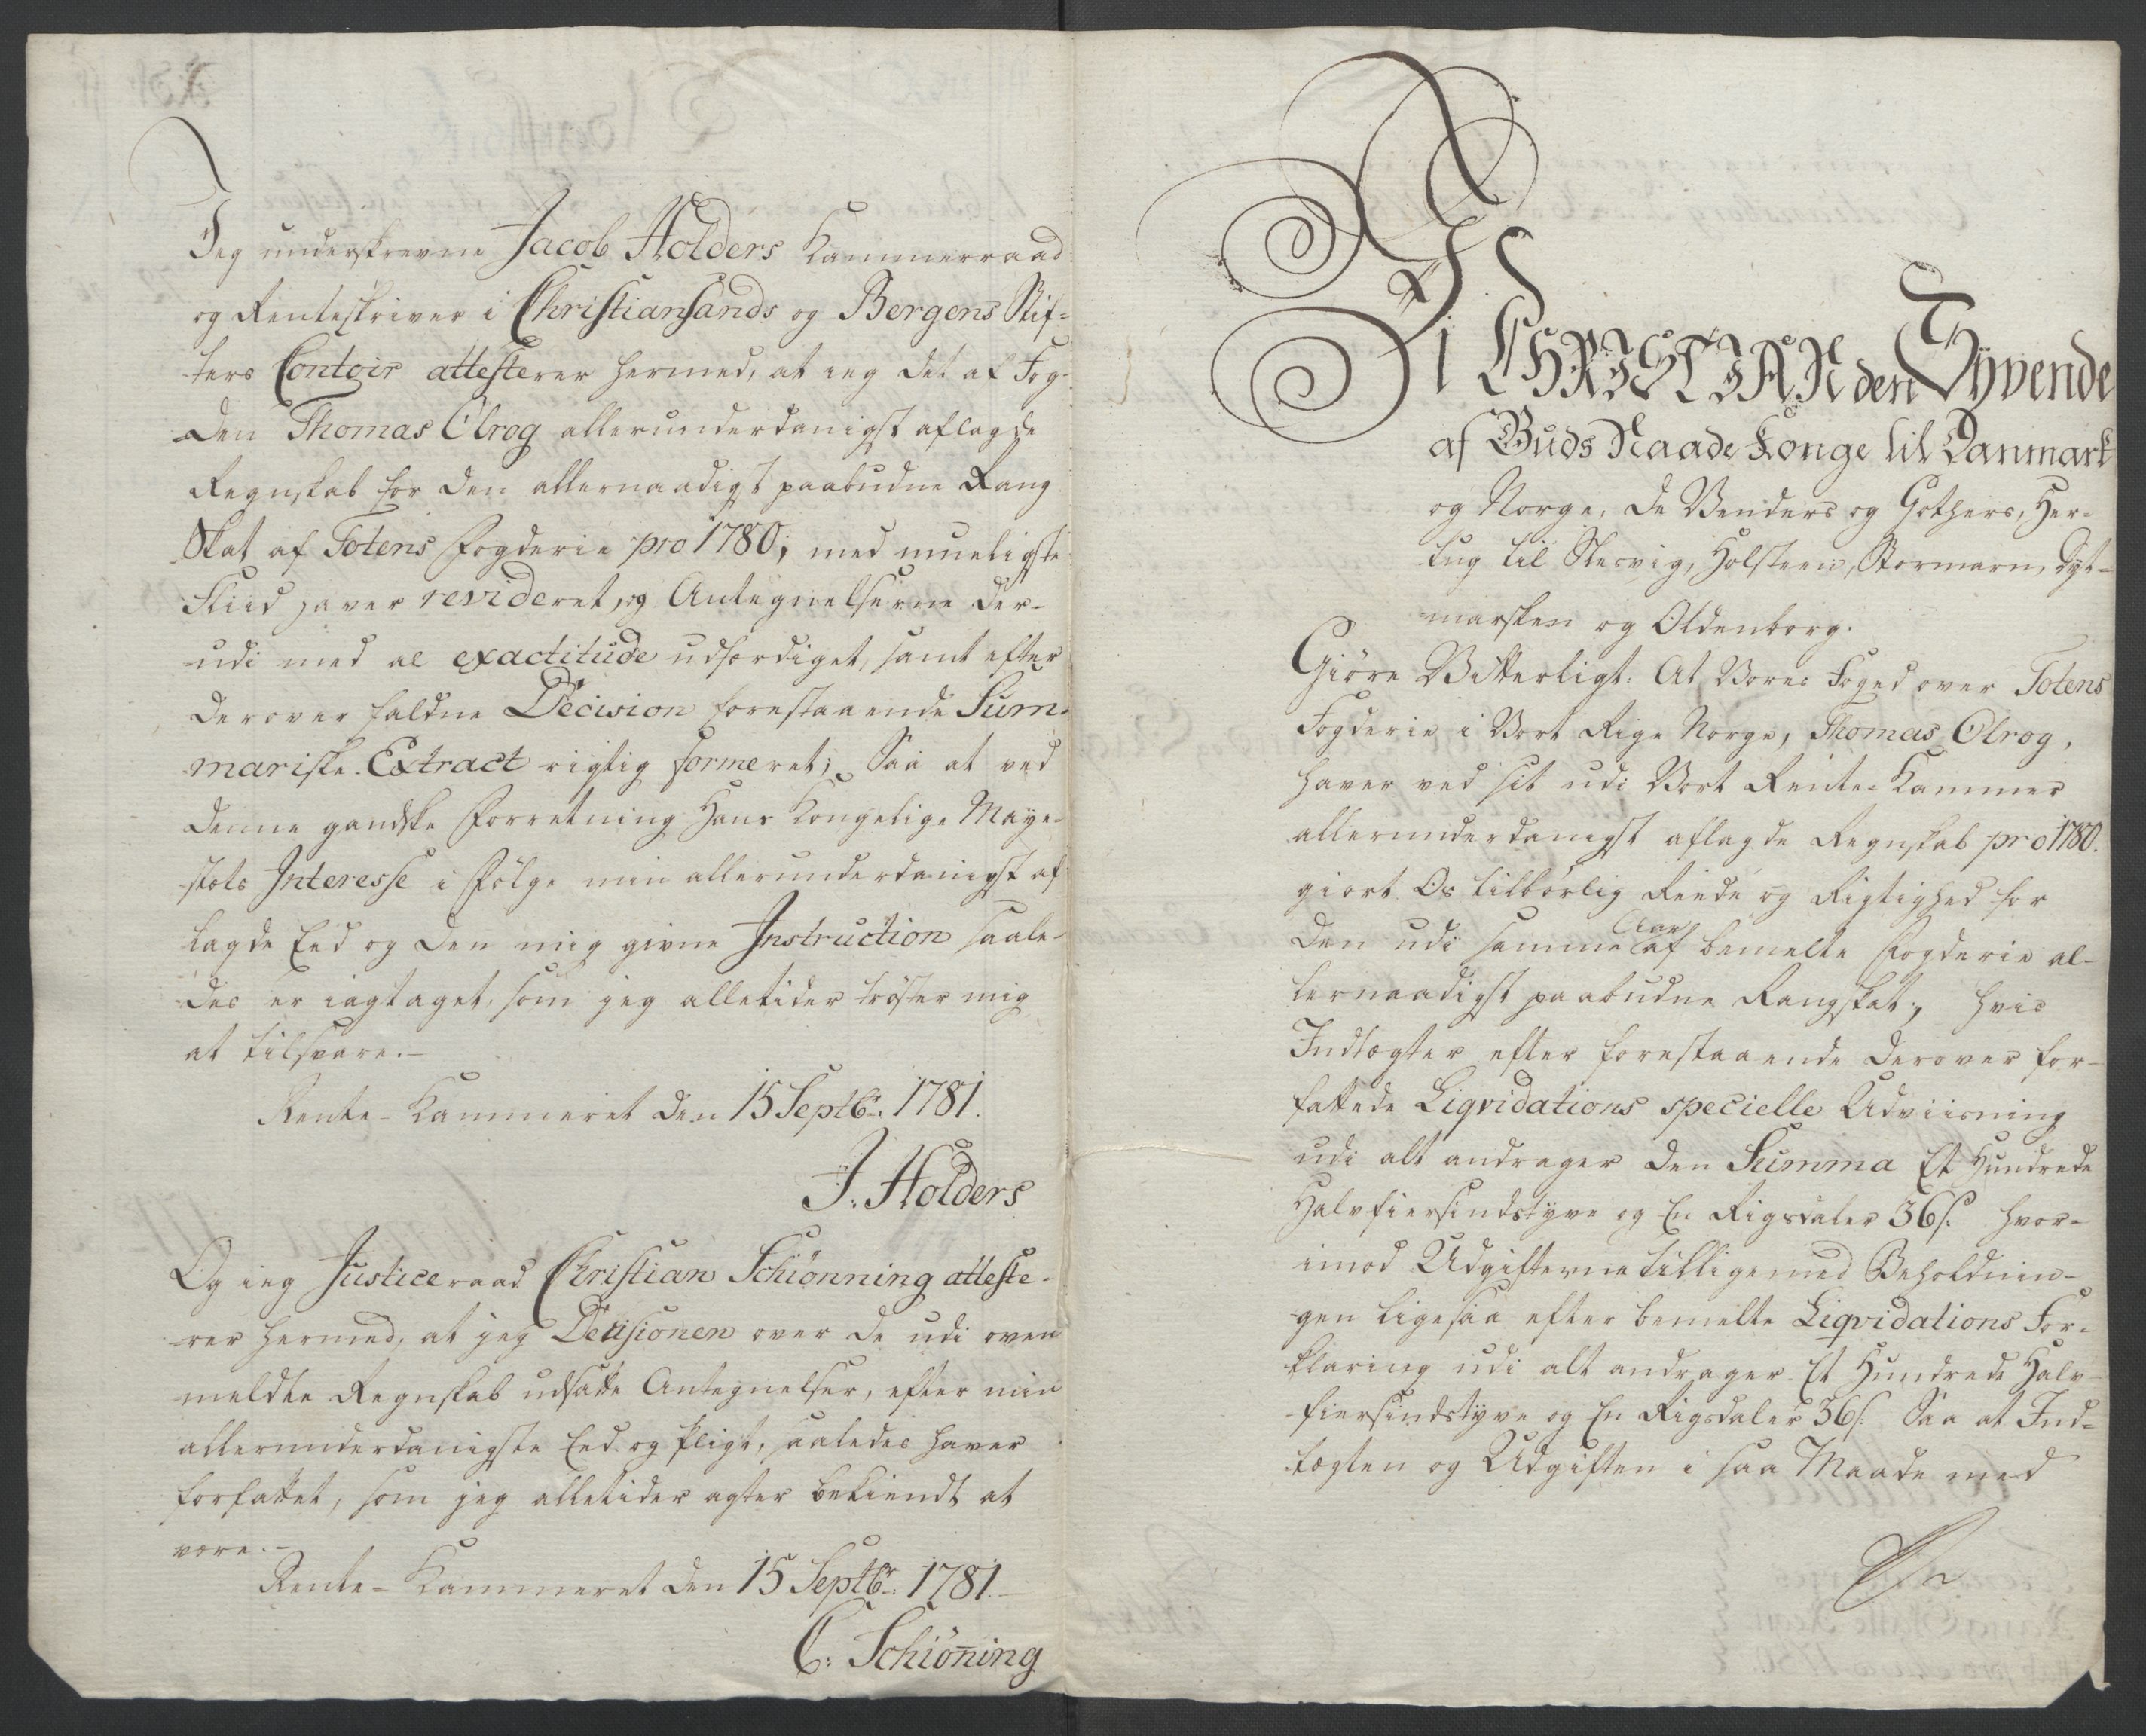 Jeg underskrevne Jacob Holders Kammerraad
og Renteskriver i Christiansands og Bergens Stif-
ters Contoir attesterer hermed, at ieg det af Fog-
den Thomas Olrog allerunderdanigst aflagde
Regnskab for den allernaadigst paabudne Rang
Skat af Totens Fogderie pro 1780; med mueligste
Fliid haver revideret, og Antegnelserne der-
udi med al exactitude udfærdiget, samt efter
derover faldne Decision forestaaende Sum-
mariske Extract rigtig formeret; Saa at ved
denne gandske Forretning Hans Kongelige Maye-
stæts Interesse i Følge min allerunderdanigst af
lagde Eed og den mig givne Instruction saale-
des er iagtaget, som jeg alletider trøster mig
at tilsvare.-
Rente-Kammeret den 15 Septbr: 1781.
J. Holders
Og ieg Justiceraad Christian Schiönning atteste-
rer hermed, at jeg Decisionen over de udi oven
meldte Regnskab udsatte Antegnelser, efter min
allerunderdanigste Eed og Pligt, saaledes haver
forfattet, som jeg alletider agter bekiendt at
være.-
Rente-Kammeret den 15 Septbr: 1781.-
C: Schiöning
Vi CHRISTIAN den Syvende
af Guds Naade Konge til Danmark
og Norge, de Venders og Gothers, Her-
tug til Slesvig, Holsteen, Stormarn, Dyt-
marsken og Oldenborg.
Giöre Vitterligt: At Vores Foged over Totens
Fogderie i Vort Rige Norge, Thomas Olrog,
haver ved sit udi Vort Rente-Kammer
allerunderdanigst aflagde Regnskab pro 1780.
giort Os tilbørlig Reede og Rigtighed for
den udi samme Aar af bemelte Fogderie al-
lernaadigst paabudne Rangskat; hvis
Indtægter efter forestaaende derover for-
fattede Liqvidations specielle Udviisning
udi alt andrager den Summa Et Hundrede
Halvfiersindstyve og En Rigsdaler 36 s. hvor-
imod Udgifterne tilligemed Beholdnin-
gen ligesaa efter bemelte Liqvidations For-
klaring udi alt andrager Et Hundrede Halv-
fiersindstyve og En Rigsdaler 36 s. Saa at Ind-
tægten og Udgiften i saa Maade med